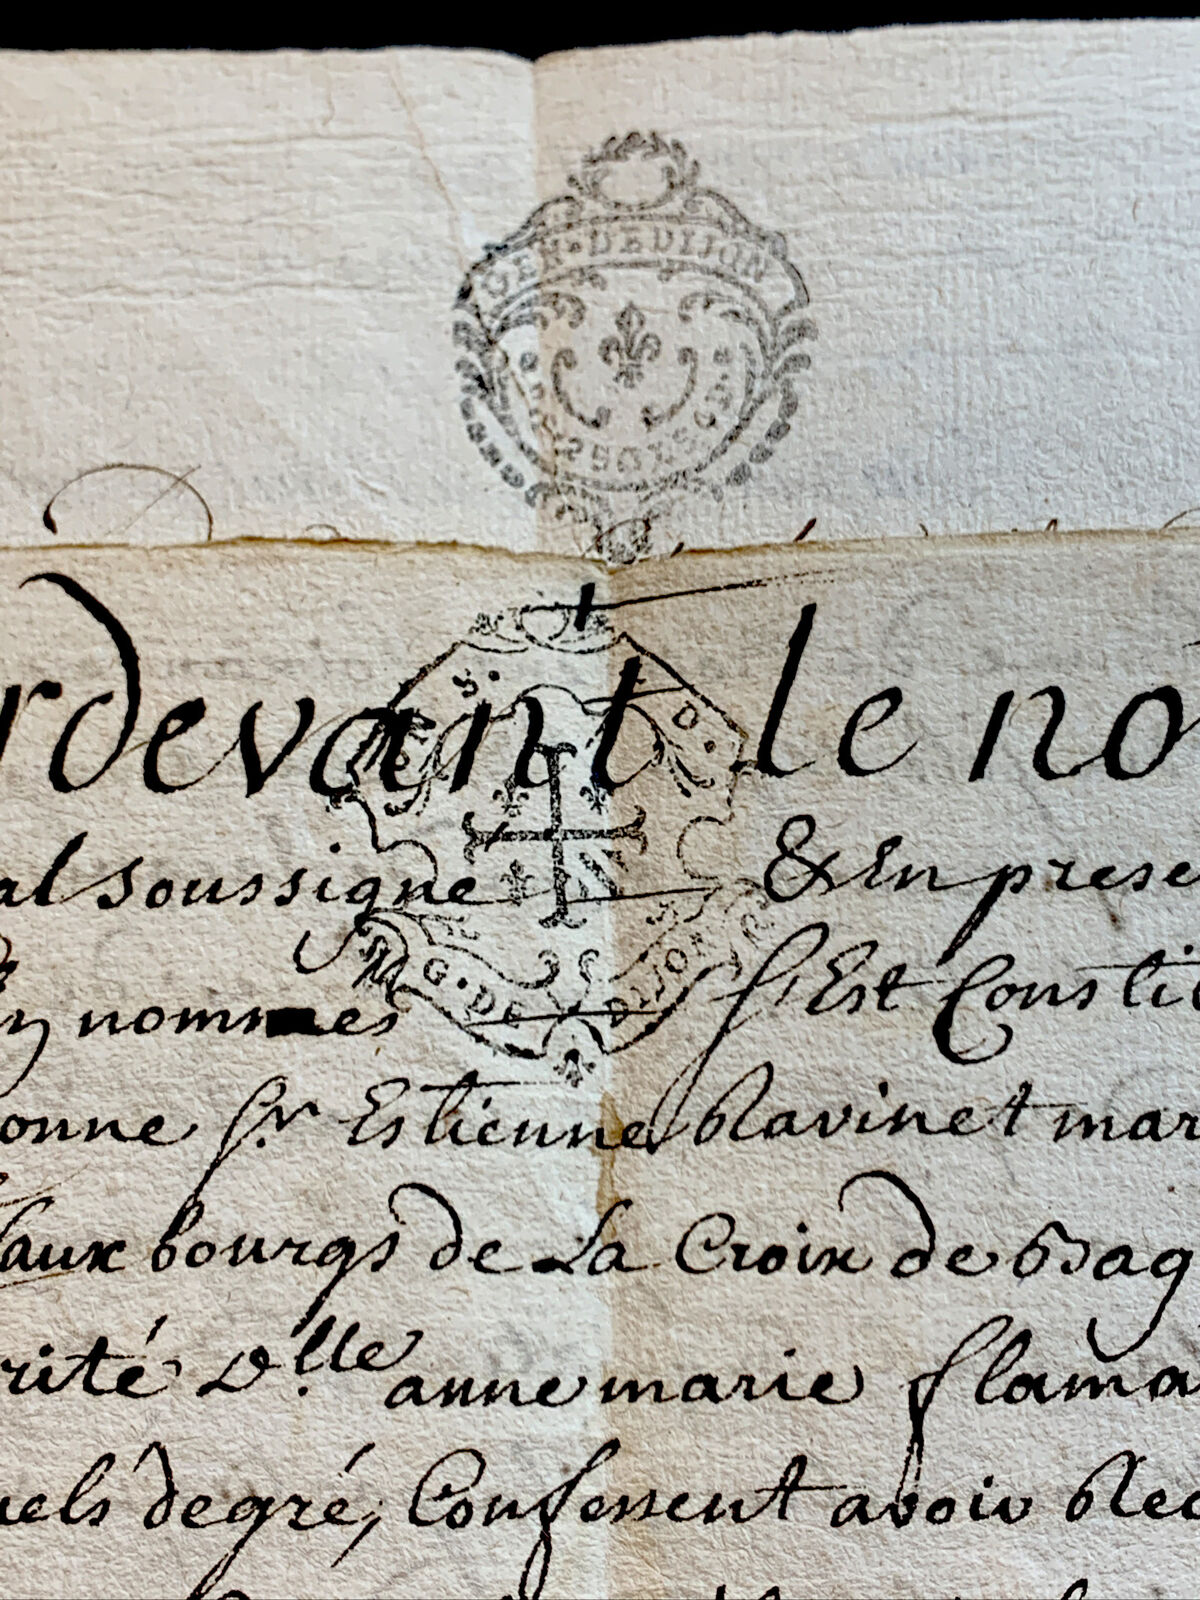 GEN·DEDIJON
S. D.
G·DE DIJON
rdevant le no
al soussigne & En prese
nommes s'Est Constit
onne Sr Estienne Ravinet mar
faux bourgs de La Croix de Bag
rité D.lle anne marie flama
uels degré, Confessent avoir Rec